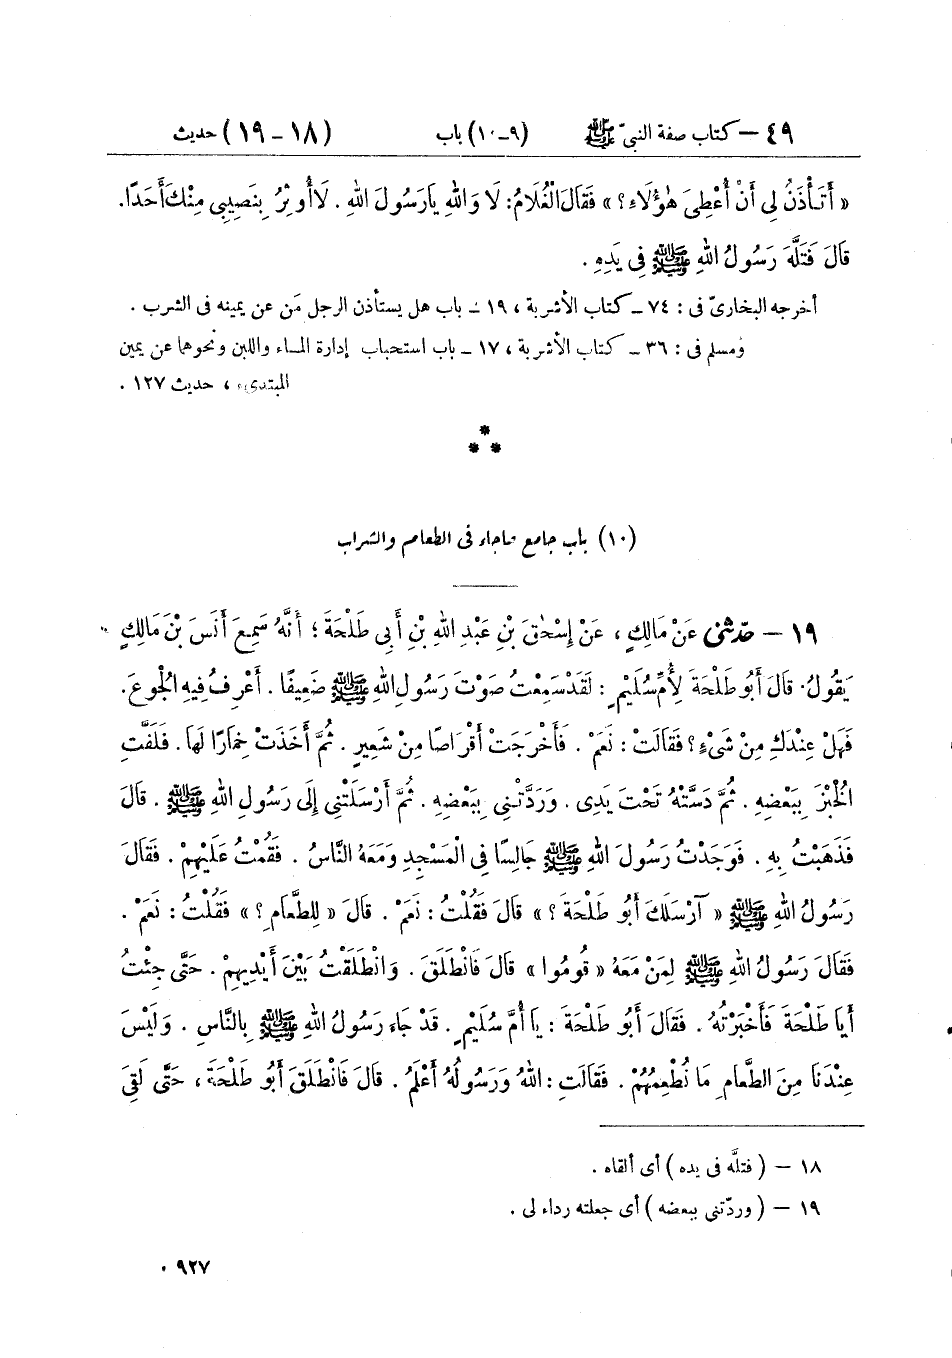 ٤٩ – كتاب صفة النبىّ ﷺ (٩-١٠) باب (١٨ – ١٩) حديث
« أَتَأْذَنُ لِى أَنْ أُعْطِىَ هٰؤُلَاءِ ؟ » فَقَالَ الْغُلَامُ: لَا وَاللهِ يَارَسُولَ اللهِ . لَا أُوثِرُ بِنَصِيبِى مِنْكَ أَحَدًا.
قَالَ فَتَلَّهُ رَسُولُ اللهِ ﷺ فِى يَدِهِ .
أخرجه البخارىّ فى : ٧٤ – كتاب الأشربة ، ١٩ – باب هل يستأذن الرجل مَن عن يمينه فى الشرب .
ومسلم فى : ٣٦ – كتاب الأشربة ، ١٧ – باب استحباب إدارة المـاء واللبن ونحوهما عن يمين
المبتدىء ، حديث ١٢٧ .
* * *
(١٠) باب جامع ماجاء فى الطعام والشراب
١٩ – حدّثنى عَنْ مَالِكٍ ، عَنْ إِسْحٰقَ بْنِ عَبْدِ اللهِ بْنِ أَبِى طَلْحَةَ ؛ أَنَّهُ سَمِعَ أَنَسَ بْنَ مَالِكٍ
يَقُولُ : قَالَ أَبُو طَلْحَةَ لِأُمِّ سُلَيْمٍ : لَقَدْ سَمِعْتُ صَوْتَ رَسُولِ اللهِ ﷺ ضَعِيفًا . أَعْرِفُ فِيهِ الْجُوعَ.
فَهَلْ عِنْدَكِ مِنْ شَىْءٍ ؟ فَقَالَتْ : نَعَمْ . فَأَخْرَجَتْ أَقْرَاصًا مِنْ شَعِيرٍ . ثُمَّ أَخَذَتْ خِمَارًا لَهَا . فَلَفَّتِ
الْخُبْزَ بِبَعْضِهِ . ثُمَّ دَسَّتْهُ تَحْتَ يَدِى . وَرَدَّتْنِى بِبَعْضِهِ . ثُمَّ أَرْسَلَتْنِى إِلَى رَسُولِ اللهِ ﷺ . قَالَ
فَذَهَبْتُ بِهِ . فَوَجَدْتُ رَسُولَ اللهِ ﷺ جَالِسًا فِى الْمَسْجِدِ وَمَعَهُ النَّاسُ . فَقُمْتُ عَلَيْهِمْ . فَقَالَ
رَسُولُ اللهِ ﷺ « آرْسَلَكَ أَبُو طَلْحَةَ ؟ » قَالَ فَقُلْتُ : نَعَمْ . قَالَ « لِلطَّعَامِ ؟ » فَقُلْتُ : نَعَمْ .
فَقَالَ رَسُولُ اللهِ ﷺ لِمَنْ مَعَهُ « قُومُوا » قَالَ فَانْطَلَقَ . وَانْطَلَقْتُ بَيْنَ أَيْدِيهِمْ . حَتَّى جِئْتُ
أَبَا طَلْحَةَ فَأَخْبَرْتُهُ . فَقَالَ أَبُو طَلْحَةَ : يَا أُمَّ سُلَيْمٍ . قَدْ جَاءَ رَسُولُ اللهِ ﷺ بِالنَّاسِ . وَلَيْسَ
عِنْدَنَا مِنَ الطَّعَامِ مَا نُطْعِمُهُمْ . فَقَالَتِ : اللهُ وَرَسُولُهُ أَعْلَمُ . قَالَ فَانْطَلَقَ أَبُو طَلْحَةَ ، حَتَّى لَقِىَ
١٨ – ( فتلّه فى يده ) أى ألقاه .
١٩ – ( وردّتنى ببعضه ) أى جعلته رداء لى .
٩٢٧